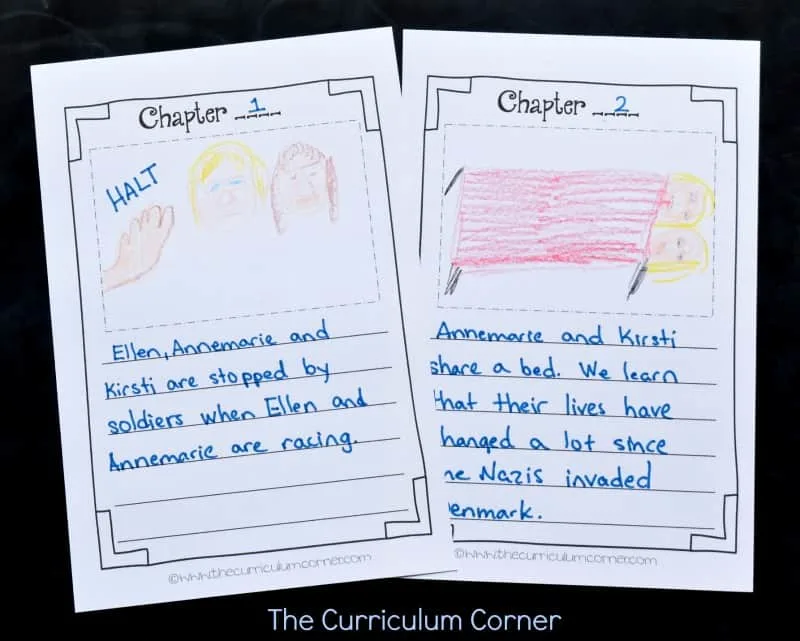 Chapter 1
HALT
Ellen, Annemarie and
Kirsti are stopped by
soldiers when Ellen and
Annemarie are racing.
©www.thecurriculumcorner.com
Chapter 2
Annemarie and Kirsti
share a bed. We learn
that their lives have
hanged a lot since
he Nazis invaded
enmark.
©www.thecurriculumcorner.com
The Curriculum Corner